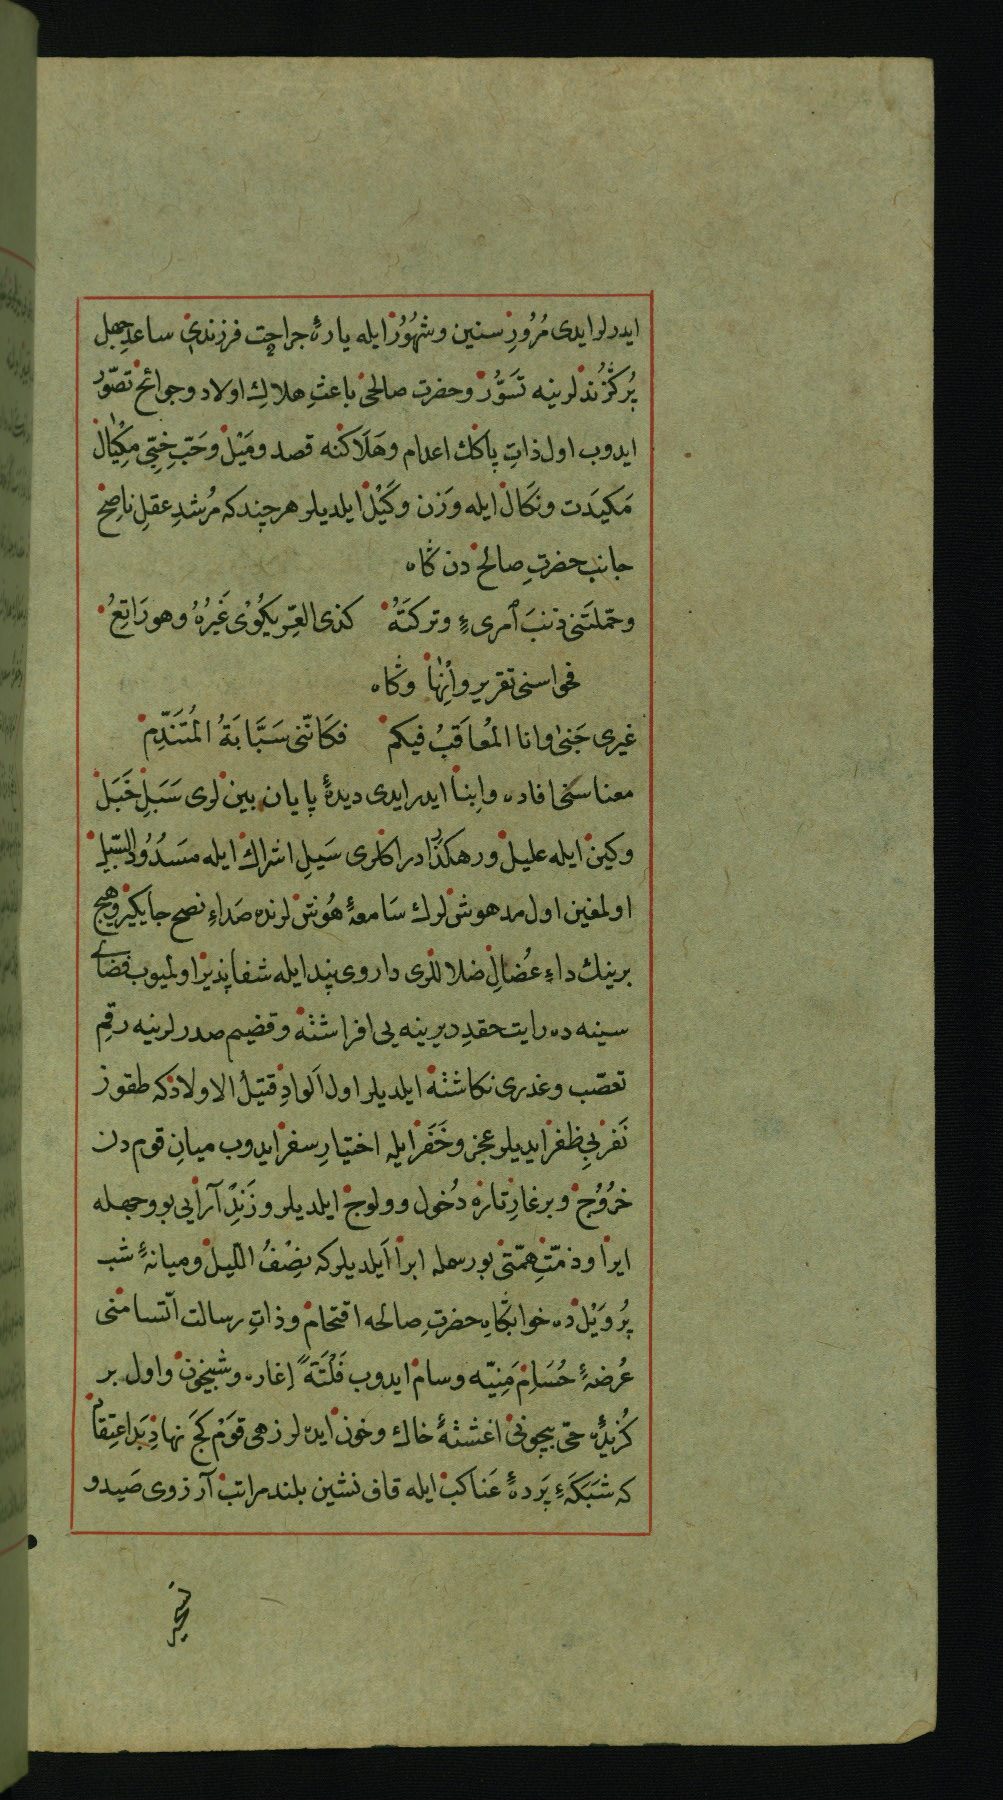 ایدرلر ایدی مُرُورِ سنین و شُهُورْ ایله یارهٔ جراحت فرزندی ساعدِ جهل
پُرگزندلرینه تَسَوُّرْ و حضرت صالحی باعثِ هلاكِ اولاد و جوائح تصوّر
ایدوب اول ذاتِ پاکك اعدام و هَلَاكنه قصد و مَیْل و حَبّ مِكْیَالْ
مَكیدَت و نكَالْ ایله وَزن و كَیْلْ ایلدیلر هر چند كه مُرشدِ عقلِ ناصِحْ
جانب حضرتِ صالح دن گاه
وحمّلتَنی ذنبَ امریءٍ وتركتَهُ كذی العِرّ یُكْوٰی غَیْرُهُ وهو رَاتِعُ
فحواسنی تقریر و اِنْهَا و گاه
غیری جَنیٰ وانا المُعاقَبُ فیكم فكَانّنی سَبَّابَةُ المُتَنَدِّم
معناسنی افاده و اِبنا ایدر ایدی دیدهٔ پایان بین لری سَبَلِ خَبَل
و كین ایله علیل و رهكذار ادراكلری سَیلِ اشراك ایله مسَدُودُ السّبیل
اولمغین اول مدهوش لرك سَامعهٔ هُوش لرنده صَداءِ نصح جایگیر و هیچ
برینك داءِ عُضالِ ضلاللری داروی پند ایله شفاپذیر اولمیوب فضای
سینه ده رایت حقدِ دیرینه یی افراشته و قضیم صدرلرینه رقمِ
تعصّب و غدری نكاشته ایلدیلر اول اَلوادِ قتیلُ الاولاد كه طقوز
نَفر بی ظفر ایدیلر عجز و خَفَر ایله اختیارِ سفر ایدوب میانِ قوم دن
خُرُوجْ و بر غارِ تاره دُخول و ولوج ایلدیلر و زَندِ آرایی بو وجهله
ایرا و ذمّتِ همّتی بو رسمله ابرا اَیلدیلر كه نِصْفُ اللّیل و میانهٔ شب
پُر وَیْل ده خوابگاهِ حضرتِ صالحه اقتحام و ذاتِ رسالت اتّسامنی
عُرضهٔ حُسَامِ مَنِیّه و سام ایدوب فَلْتَةً اِغاره و شبیخون و اول بر
گُزیدهٔ حیّ بیچونی اغشتهٔ خاك و خون ایده لر زهی قَومِ كَج نهادِ بَد اعتِقاد
كه شبَكهٔ پَردهٔ عَناكب ایله قاف نشین بلند مراتب آرزوی صَید و